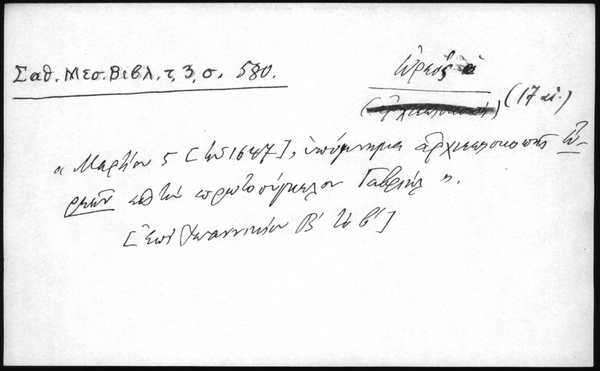 Σαθ. Μεσ. Βιβλ. τ. 3, σ. 580.
Ὠρεὸς
(17 αἰ.)
« Μαρτίου 5 [ 1647], ὑπόμνημα ἀρχιεπισκοπῆς Ὠ-
ρεῶν εἰς τὸν πρωτοσύγκελον Γαβριήλ ».
[ἐπὶ Ἰωαννικίου Β´ τὸ β´]